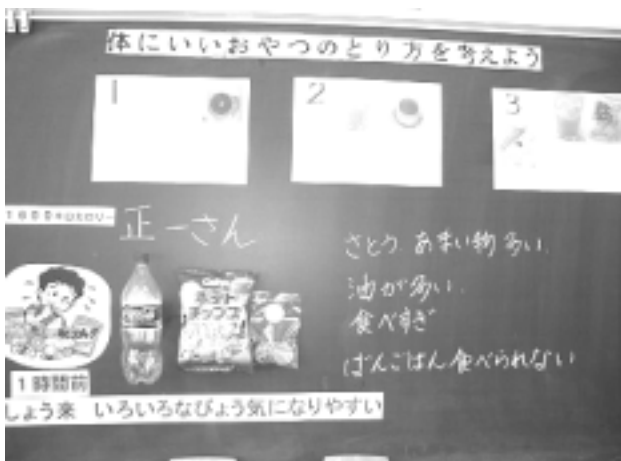 体にいいおやつのとり方を考えよう
1
2
3
正一さん
さとう あまい物多い
油が多い
食べすぎ
ばんごはん食べられない
チップス
1時間前
しょう来 いろいろなびょう気になりやすい